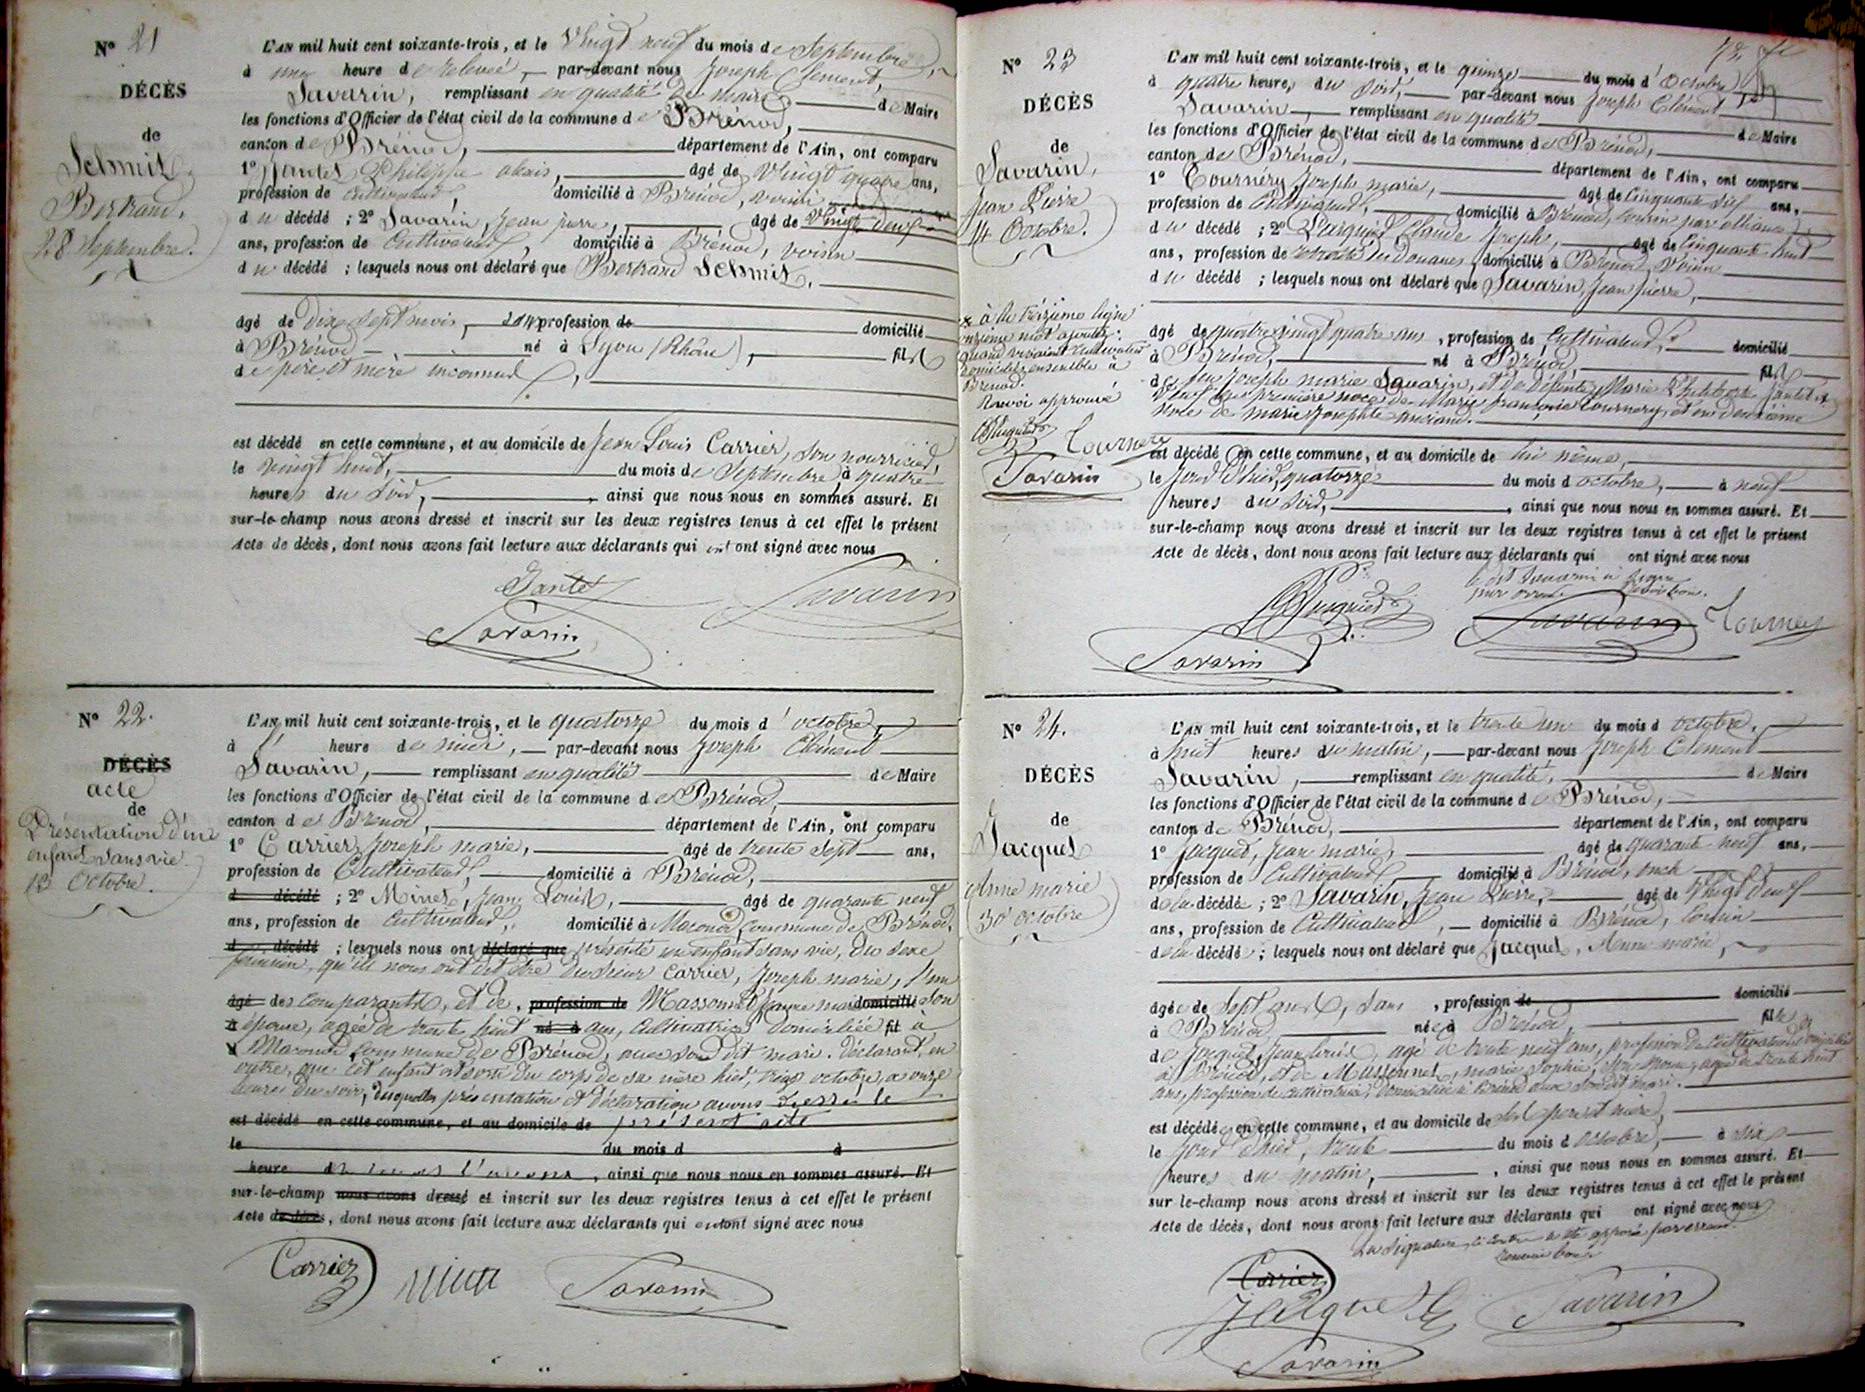 N° 21
DÉCÈS
de
Schmit
Bertrand.
28 Septembre.
L'AN mil huit cent soixante-trois, et le Vingt neuf du mois de Septembre,
à une heure de relevée, par-devant nous Joseph Clément
Savarin, remplissant en qualité de maire de Maire
les fonctions d'Officier de l'état civil de la commune de Brénod,
canton de Brénod, département de l'Ain, ont comparu
1° Jantet, Philippe alexis, âgé de Vingt quatre ans,
profession de cultivateur, domicilié à Brénod, voisin
du décédé ; 2° Savarin, Jean pierre, âgé de Vingt neuf
ans, profession de Cultivateur, domicilié à Brénod, voisin
du décédé ; lesquels nous ont déclaré que Bertrand Schmit,
âgé de dix sept mois, sans profession de domicilié
à Brénod né à Lyon (Rhône), fils
de père et mère inconnus,
est décédé en cette commune, et au domicile de Jean Louis Carrier, son nourricier,
le vingt huit, du mois de Septembre à quatre
heures du soir, ainsi que nous nous en sommes assuré. Et
sur-le-champ nous avons dressé et inscrit sur les deux registres tenus à cet effet le présent
Acte de décès, dont nous avons fait lecture aux déclarants qui ont ont signé avec nous
Jantet Savarin
Savarin
N° 22.
DÉCÈS
acte
de
Présentation d'un
enfant sans vie
13 Octobre.
L'AN mil huit cent soixante-trois, et le quatorze du mois d'octobre,
à heure de midi, par-devant nous Joseph Clément
Savarin, remplissant en qualité de Maire
les fonctions d'Officier de l'état civil de la commune de Brénod,
canton de Brénod, département de l'Ain, ont comparu
1° Carrier, Joseph marie, âgé de trente sept ans,
profession de Cultivateur, domicilié à Brénod,
d décédé ; 2° Minet, Jean Louis, âgé de quarante neuf
ans, profession de Cultivateur, domicilié à Maconod, commune de Brénod,
d décédé ; lesquels nous ont déclaré que présenté un enfant sans vie, du sexe
féminin, qu'ils nous ont dit être du sieur Carrier, Joseph marie, l'un
âgé des comparants, et de, profession de Massonnet, jeanne marie domicilié son
à épouse, agée de trente huit né à ans, cultivatrice domiciliée fil à
Maconod, commune de Brénod, avec son dit mari. Déclarant, en
outre, que cet enfant est sorti du corps de sa mère hier, treize octobre, a onze
heures du soir, desquelles présentation et déclaration avons dressé le
est décédé en cette commune, et au domicile de présent acte
le du mois d à
heure d ainsi que nous nous en sommes assuré. Et
sur-le-champ nous avons dressé et inscrit sur les deux registres tenus à cet effet le présent
Acte de décès, dont nous avons fait lecture aux déclarants qui ont ont signé avec nous
Carrier Minet Savarin
N° 23
DÉCÈS
de
Savarin,
Jean Pierre
14 Octobre.
L'AN mil huit cent soixante-trois, et le quinze du mois d'Octobre
à quatre heures du soir, par-devant nous Joseph Clément
Savarin, remplissant en qualité de Maire
les fonctions d'Officier de l'état civil de la commune de Brénod,
canton de Brénod, département de l'Ain, ont comparu
1° Tournery, Joseph marie, âgé de Cinquante dix ans,
profession de Cultivateur, domicilié à Brénod, cousin par alliance
du décédé ; 2° Puignier, Claude Joseph, âgé de Cinquante huit
ans, profession de retraité des Douanes, domicilié à Brénod, Voisin
du décédé ; lesquels nous ont déclaré que Savarin, Jean pierre,
âgé de quatre vingt quatre ans, profession de Cultivateur, domicilié
à Brénod, né à Brénod, fils
de feu Joseph marie Savarin, et de défunte Marie Philiberte Jantet *
Veuf en première noce de Marie françoise Tournery, et en deuxième
noce de marie Josephte
est décédé en cette commune, et au domicile de lui même,
le jour d'hier, quatorze du mois d'octobre, à neuf
heures du soir, ainsi que nous nous en sommes assuré. Et
sur-le-champ nous avons dressé et inscrit sur les deux registres tenus à cet effet le présent
Acte de décès, dont nous avons fait lecture aux déclarants qui ont signé avec nous
* à la treizième ligne
onzième mot ajouté:
quand vivaient cultivateurs
domiciliés ensemble à
Brénod.
Renvoi approuvé
Puignier Tournery
Savarin
le dit Savarin a signé
par erreur
Puignier Savarin Tournery
Savarin
N° 24.
DÉCÈS
de
Jacquet
Anne marie
30 octobre
L'AN mil huit cent soixante-trois, et le trente un du mois d'octobre,
à huit heures du matin, par-devant nous Joseph Clément
Savarin, remplissant en qualité, de Maire
les fonctions d'Officier de l'état civil de la commune de Brénod,
canton de Brénod, département de l'Ain, ont comparu
1° Jacquet, Jean marie, âgé de quarante neuf ans,
profession de Cultivateur domicilié à Brénod, oncle
de la décédé ; 2° Savarin, Jean Pierre, âgé de Vingt neuf
ans, profession de Cultivateur, domicilié à Brénod, cousin
de la décédé ; lesquels nous ont déclaré que Jacquet, Anne marie,
âgée de Sept ans, sans, profession de domicilié
à Brénod née à Brénod, fille
de Jacquet, Jean louis, agé de trente neuf ans, profession de Cultivateur domicilié
à Brénod, et de Massonnet, marie Sophie, son épouse, agée de trente huit
ans, profession de cultivatrice, domiciliée à Brénod avec son dit mari.
est décédée en cette commune, et au domicile de ses père et mère,
le jour d'hier, trente du mois d octobre, à six
heures du matin, ainsi que nous nous en sommes assuré. Et
sur le-champ nous avons dressé et inscrit sur les deux registres tenus à cet effet le présent
Acte de décès, dont nous avons fait lecture aux déclarants qui ont signé avec nous
La signature ci contre a été apposée par erreur.
Carrier
Jacquet Savarin
Savarin